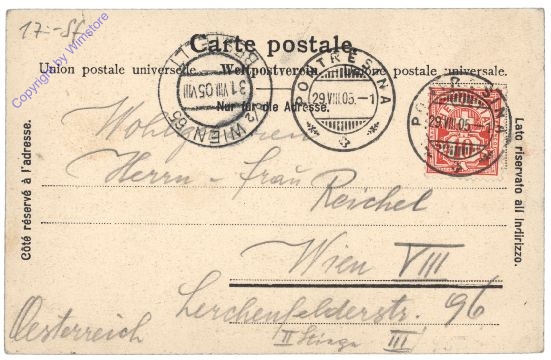 17.- Sf
Copyright by Winstore
Carte postale.
Union postale universelle. Weltpostverein. Unione postale universale.
Nur für die Adresse.
PONTRESINA
29.VIII.05.-1
WIEN 65
31.VIII.05.VIII
PONTRESINA
29.VIII.05.-1
10
Côté réservé à l'adresse.
Lato riservato all indirizzo.
Wohlgeboren
Herrn - Frau
Reichel
Wien VIII
Lerchenfelderstr. 96
II Stiege III
Oesterreich